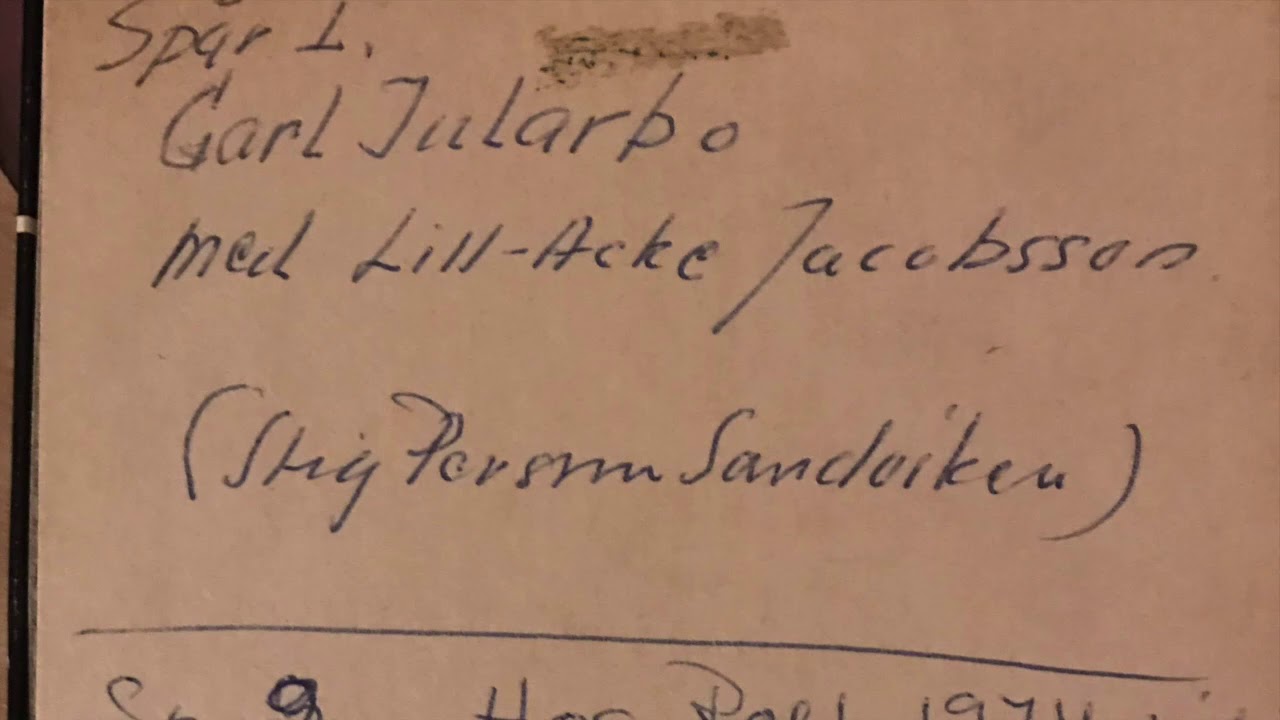 Spår 1.
Carl Jularbo
med Lill-Acke Jacobsson
(Stig Persson Sandviken)
Sp 2 Hos